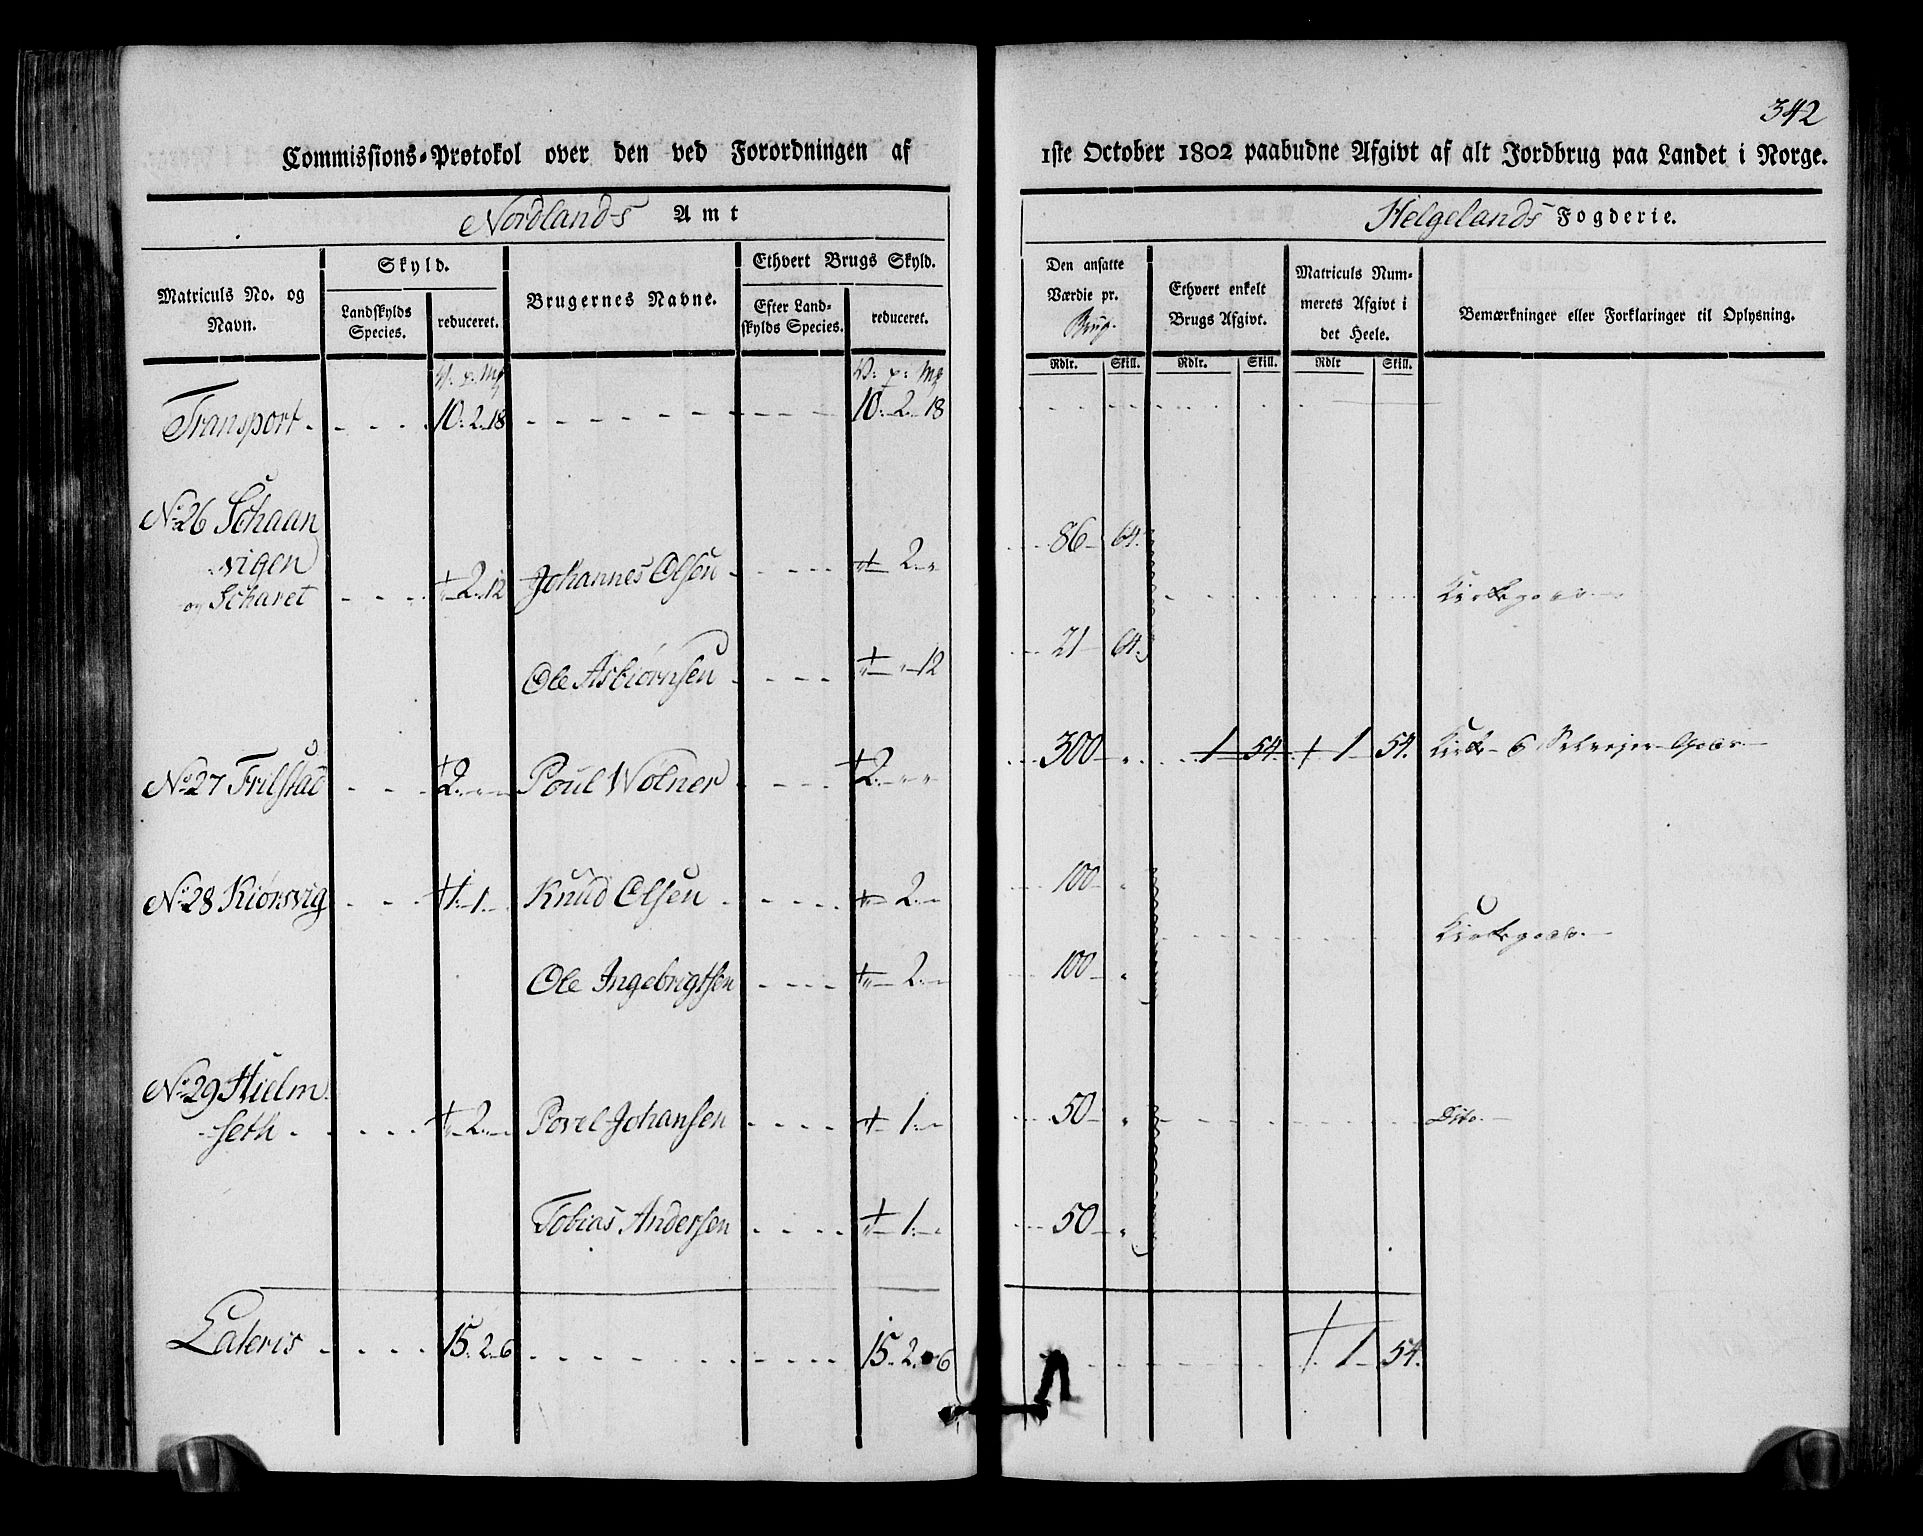 342
Commissions-Protokol over den ved Forordningen af 1ste October 1802 paabudne Afgivt af alt Jordbrug paa Landet i Norge.
Nordlands Amt Helgelands Fogderie.
Matriculs No. og Navn.
Skyld.
Landskylds Species.
reduceret.
Brugernes Navne.
Ethvert Brugs Skyld.
Efter Landskylds Species.
reduceret.
Den ansatte Værdie pr. Brug.
Ethvert enkelt Brugs Afgivt.
Matriculs Nummerets Afgivt i det Heele.
Bemærkninger eller Forklaringer til Oplysning.
Rdlr. Skill. Rdlr. Skill. Rdlr Skill.
V: p: Mk V: p: Mk
Transport 10. 2. 18 10. 2. 18
No 26 Schaan
vigen
og Scharet " 2. 12 Johannes Olsen " 2. " 86 64. Kirkegods
Ole Asbiørnsen " " 12 21 64.
No 27 Frilstad 2. " " Poul Wolner 2. " " 300 " 1 54. 1 54. Kirke- & Selvejer-Gods
No 28 Kiørsvig 1. 1. Knud Olsen " 2. " 100 " Kirkegods
Ole Ingebrigtsen " 2. " 100 "
No 29 Hielm
seth " 2. Povel Johansen " 1. " 50 " Dito
Tobias Andersen " 1. " 50 "
Lateris 15. 2. 6 15. 2. 6 1 54.